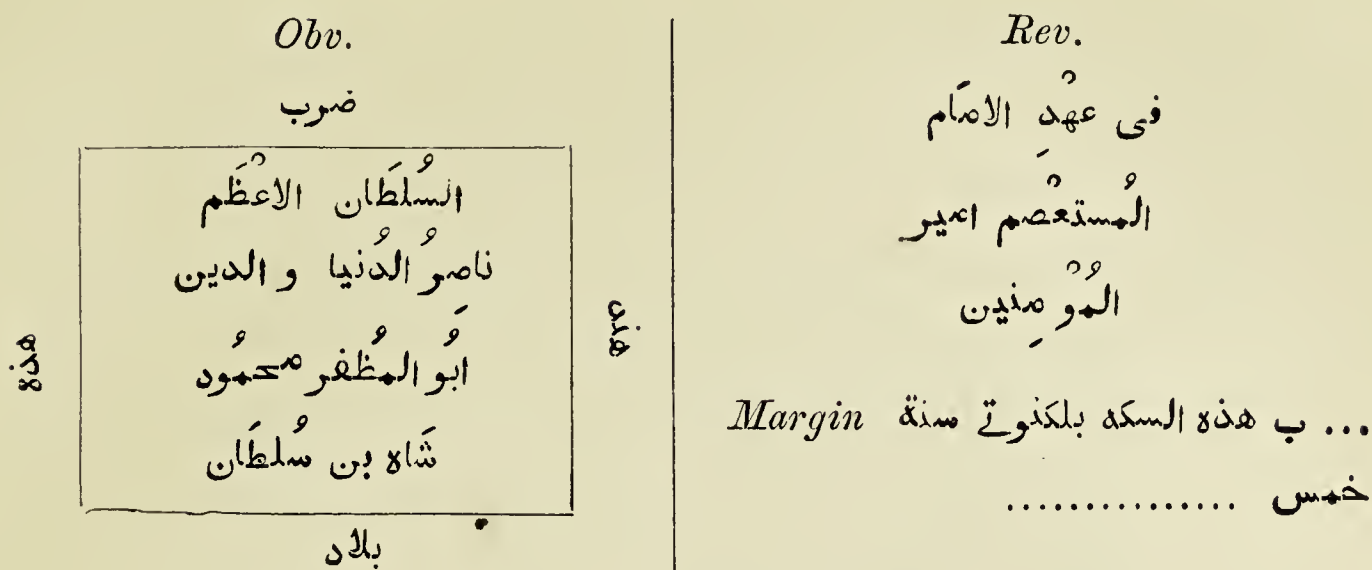 Obv.
ضرب
السُلطَان الاعْظَم
ناصِرُ الدُنيا و الدين
ابُو المُظفر محمُود
شَاه بن سُلطَان
هذه
هند
بلاد
Rev.
فى عهْدِ الامَام
المُستعْصم امير
المُوْمِنين
Margin ... ب هذه السكه بلكنوتے سنة
خمس ...............